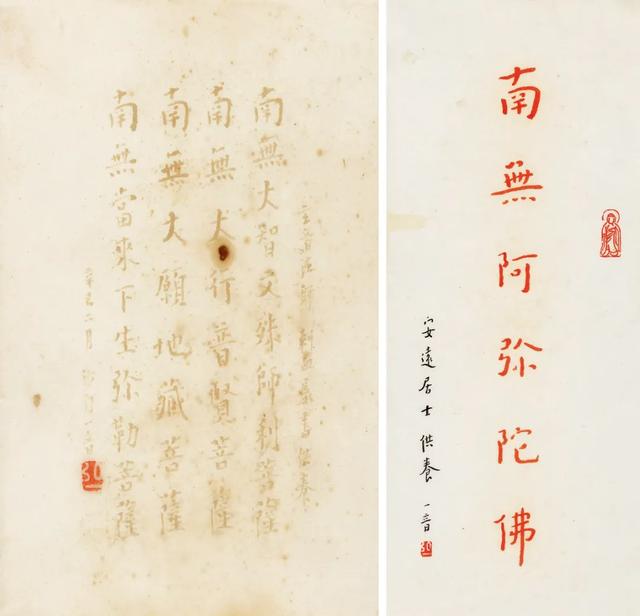 南無大智文殊師利菩薩
南無大行普賢菩薩
南無大願地藏菩薩
南無當來下生弥勒菩薩
南無阿弥陀佛
安遠居士供養 一音